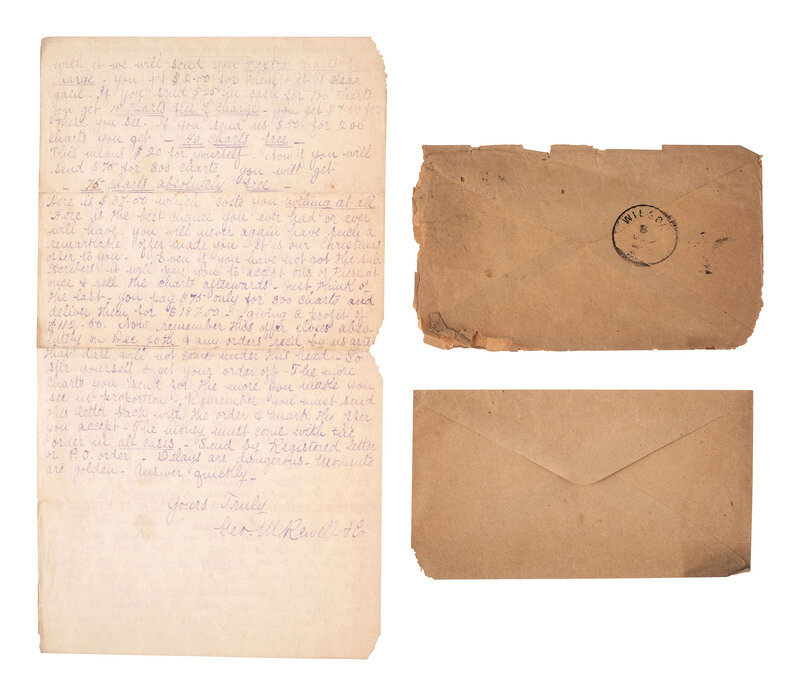 with it we will send you 5 extra charts free
charge. you get $2.00 for them & it is clear
gain. If you send $25 in cash for 100 charts
you get 15 charts free of charge. you get $7
these you see. If you send us $50 for 200
charts you get - 40 charts free -
This means $20 for yourself. Now if you will
send $75 for 300 charts you will get
- 75 charts absolutely free -
Here is $37.00 which costs you nothing at all
Here is the best chance you ever had or ever
will have. you will never again have such a
remarkable offer made you. It is our Christmas
offer to you. Even if you have not got the sub
it will pay you to accept one of these at
once & sell the charts afterwards. Just think of
the last. you pay $75 only for 300 charts and
deliver them for $187.00 - giving a profit of
$112.00. Now remember this offer closes abso-
lutely on Dec 20th & any orders rec'd by us after
that date will not come under this head. So
stir yourself & get your order off. The more
charts you send for the more you make you
see in proportion. Remember you must send
this letter back with the order & mark the offer
you accept. The money must come with the
order in all cases. Send by Registered letter
or P.O. order. Delays are dangerous. Moments
are golden. Answer quickly.
Yours Truly
Geo. M Rewell & Co
WILSON